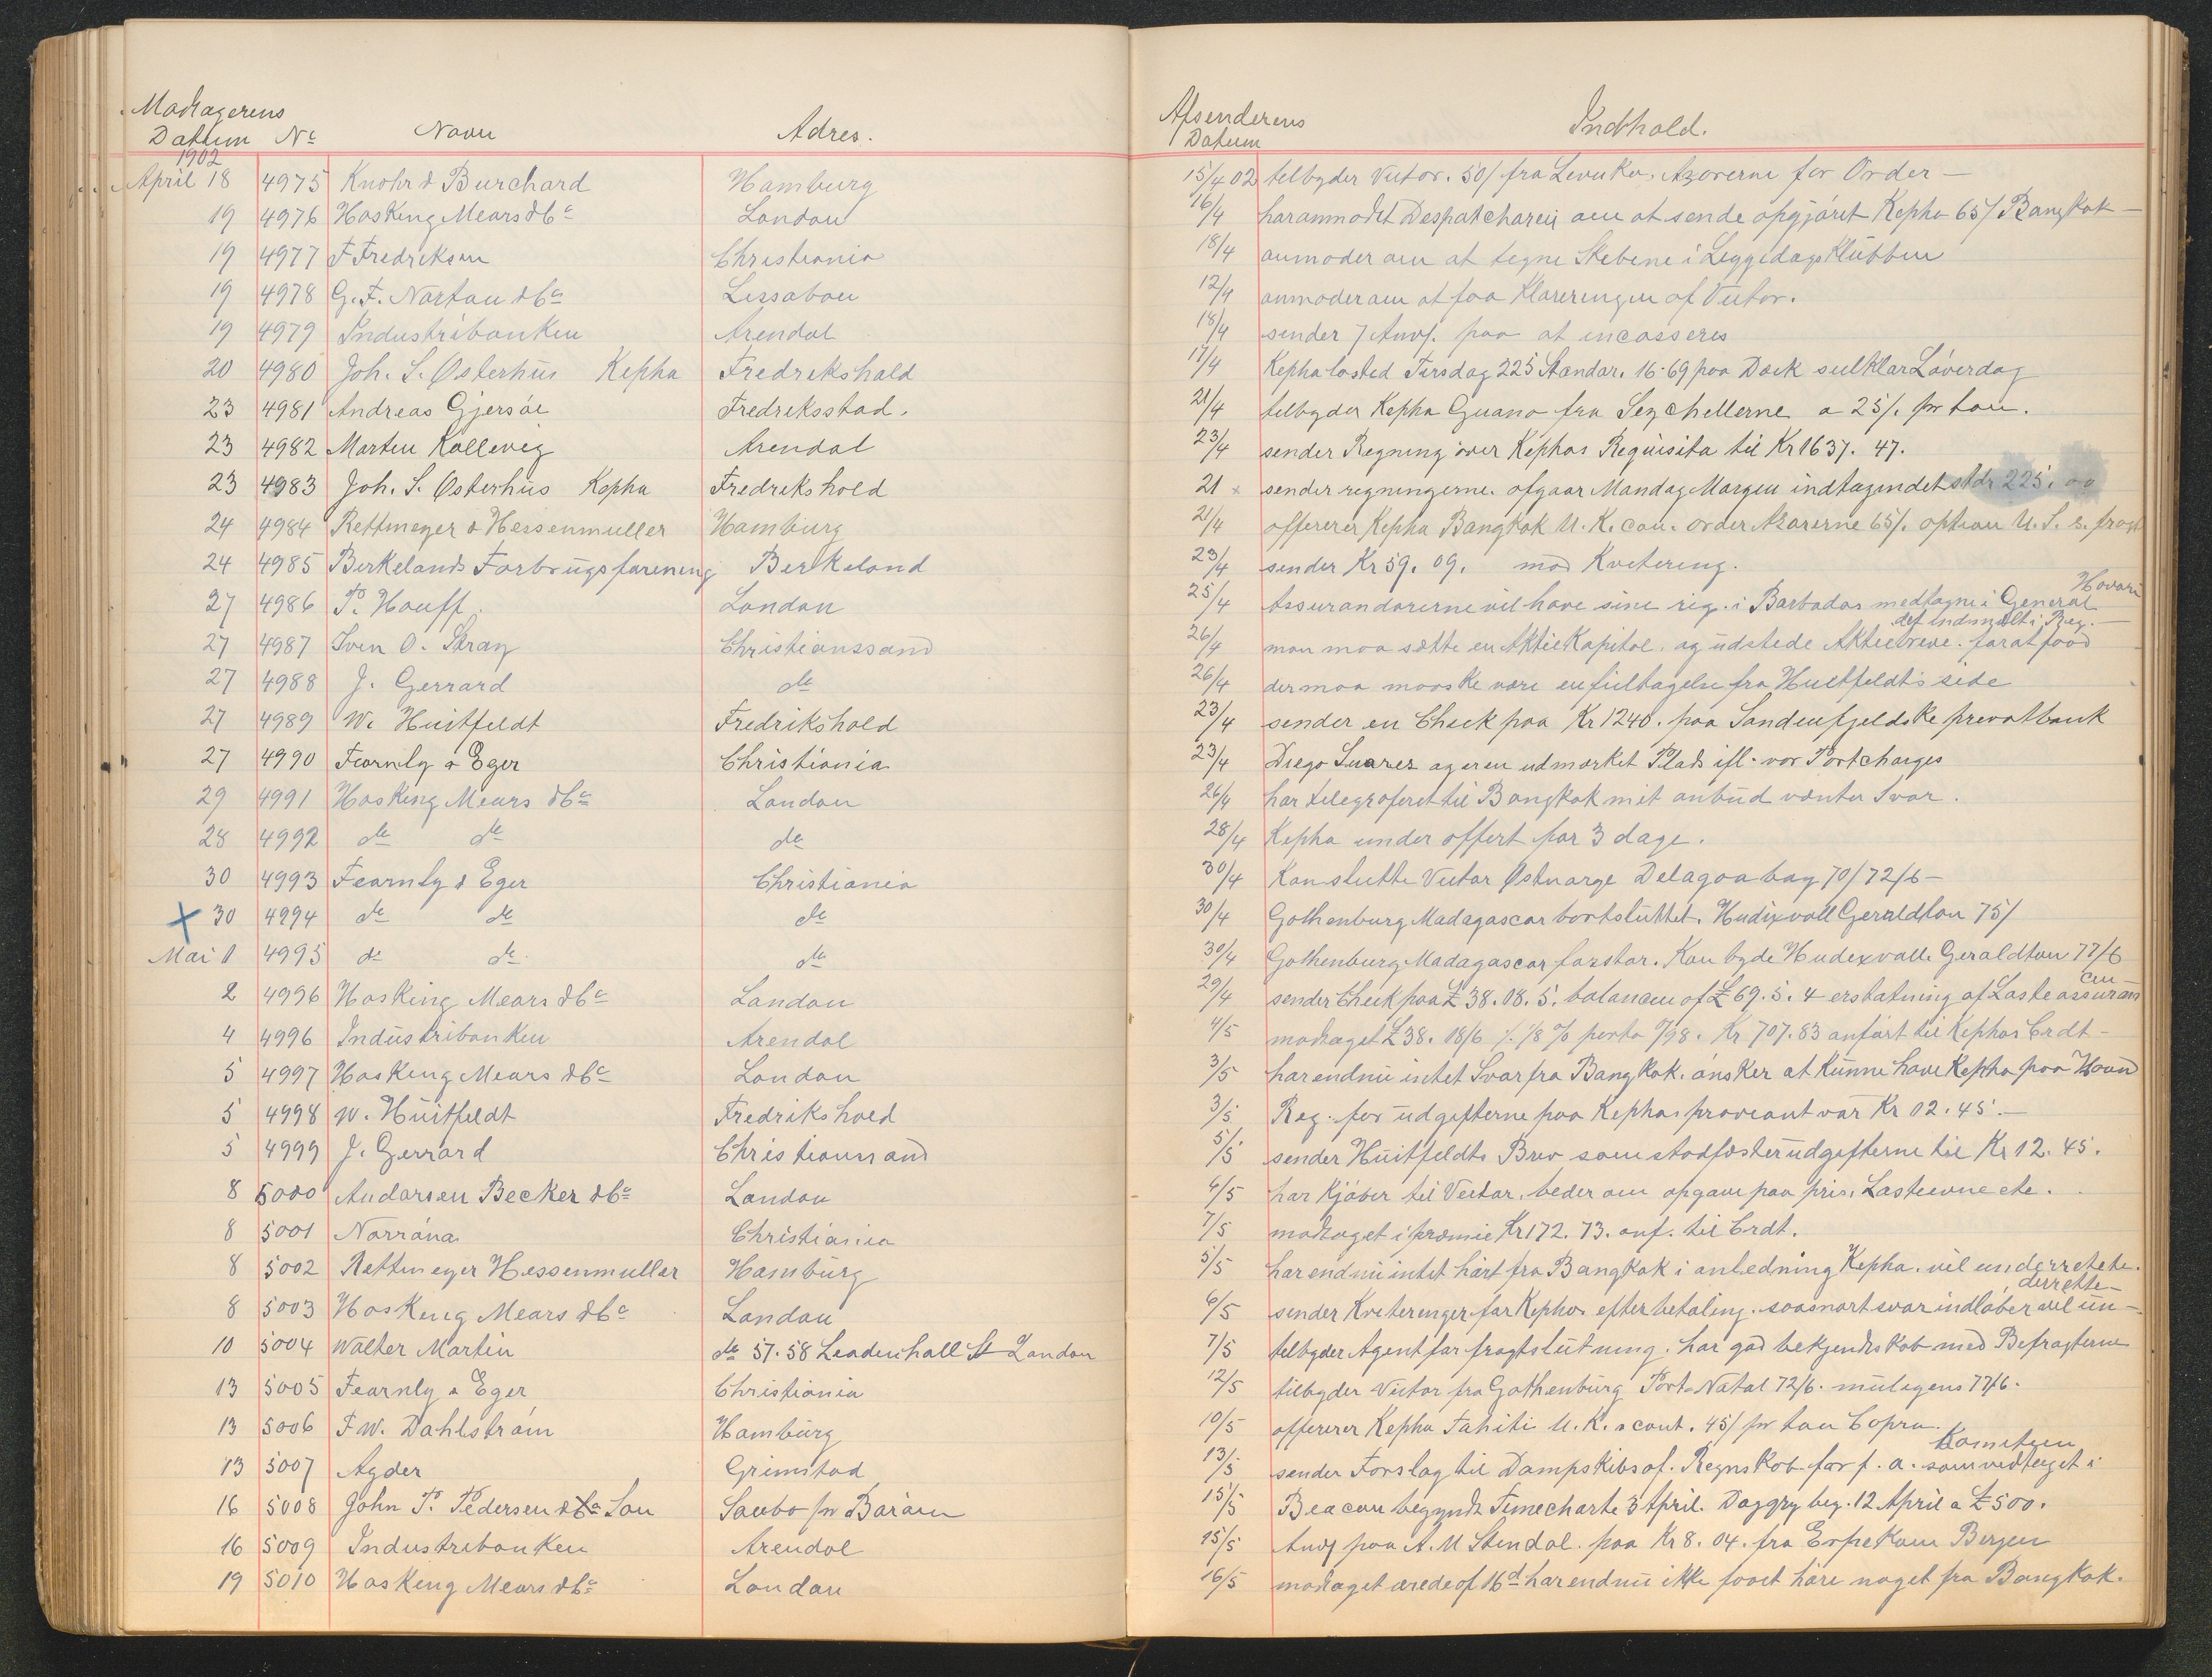 Modtagerens Afsenderens
Datum No Navn Adres. Datum Indhold.
1902
April 18 4975 Knohr & Burchard Hamburg 15/4 02 tilbyder Victor. 50/ fra Azorerne for Order —
19 4976 Hosking Mears & Co London 16/4 har anmodet om at sende opgjöret Kepha 65/ Bangkok —
19 4977 F Fredriksen Christiania 18/4 anmoder om at tegne Skebene i Liggedags Klubben
19 4978 G. F. Nortou & Co Lissabon 12/4 anmoder om at faa Klareringen af Victor.
19 4979 Industribanken Arendal 18/4 sender 7 Anv. paa at incasseres
20 4980 Joh. S. Østerhus Kepha Fredrikshald 17/4 Kepha lasted Tirsdag 225 Standar. 16-69 paa Dæk seilklar Löverdag
23 4981 Andreas Gjersöe Fredriksstad. 21/4 tilbyder Kepha Guano fra Seychellerne a 25/. pr ton.
23 4982 Morten Kallevig Arendal 23/4 sender Regning over Kephas Requisita til Kr 1637. 47.
23 4983 Joh. S. Østerhus Kepha Fredrikshald 21 x sender regningerne. afgaar Mandag Morgen indtagendet stdr 225. 00
24 4984 Rettmeyer & Hessenmuller Hamburg 21/4 offererer Kepha Bangkok U. K. con. order Azorerne 65/. option U. S.
24 4985 Berkelands Forbrugsforening Berkeland 23/4 sender Kr 59. 09. mod Kvitering.
27 4986 P. Houff. London 25/4 Assurandörerne vil have sine rig. i Barbados medtagne i General Havari
27 4987 Sven O. Stray Christianssand 26/4 man maa sætte en Aktiekapital. og udstede Aktiebreve. for at faa det indmeldt i Reg. —
27 4988 J. Gerrard do 26/4 der maa maaske være en feiltagelse fra Huitfeldt's side
27 4989 W. Huitfeldt Fredrikshald 23/4 sender en Check paa Kr 1240. paa Sandeufjeldske privatbank
27 4990 Fearnly & Eger Christiania 23/4 Diego Suarez og er en udmærket Plads ifl. vor Portcharges
29 4991 Hosking Mears & Co London 26/4 har telegraferet til Bangkok mit anbud venter Svar.
28 4992 do do do 28/4 Kepha under offert for 3 dage.
30 4993 Fearnly & Eger Christiania 30/4 Kan slutte Victor Østnorge Delagoa bay 70/ 72/6 —
X 30 4994 do do do 30/4 Gothenburg Madagascar bortsluttet. Hudixvall Geraldton 75/
Mai 1 4995 do do do 30/4 Gothenburg Madagascar forstor. Kan byde Hudexvall. Geraldton 77/6
2 4996 Hosking Mears & Co London 29/4 sender Check paa £ 38. 08. 5. balancen af £ 69. 5. 4 erstatning af Laste assuran cen —
4 4996 Industribanken Arendal 4/5 modtaget £ 38. 18/6 % 1/8 % porto Kr 707. 83 anført til Kephas Crdt —
5 4997 Hosking Mears & Co London 3/5 har endnu intet Svar fra Bangkok. önsker at Kunne have Kepha paa Haand
5 4998 W. Huitfeldt Fredrikshald 3/5 Reg. for udgifterne paa Kephas proviant var Kr 02. 45. —
5 4999 J. Gerrard Christianssand 5/5 sender Huitfeldts Brev som stadfæster udgifterne til Kr 12. 45.
8 5000 Andorsen Becker & Co London 6/5 har Kjöber til Victor. beder om opgave paa pris, Lasteevne etc.
8 5001 Norröna Christiania 7/5 modtaget i præmie Kr 172. 73. anf. til Crdt.
8 5002 Rettmeyer Hessenmuller Hamburg 5/5 har endnu intet hört fra Bangkok i anledning Kepha. vil underretete.
8 5003 Hosking Mears & Co London 6/5 sender Kviteringer for Kephas efter betaling. saasnart svar indlöber vil un- derrette —
10 5004 Walter Martin do 57. 58 Leadenhall St London 7/5 tilbyder Agent for fragtslutning. har god bekjendtskab med Befragterne
13 5005 Fearnly & Eger Christiania 12/5 tilbyder Victor fra Gothenburg Port-Natal 72/6. muligens 77/6.
13 5006 F. W. Dahlström Hamburg 10/5 offererer Kepha Tahiti U. K. & cont. 45/ pr ton Copra.
13 5007 Agder Grimstad 13/5 sender Forslag til Dampskibsaf. Regnskab for f. a. som vedtaget i Komiteen
16 5008 John P. Pedersen & Co Son Saubo pr Baröen 15/5 Beacon begyndt Timecharte 3 April. Daggry beg. 12 April a £ 500.
16 5009 Industribanken Arendal 15/5 Anv paa A. M Stendal. paa Kr 8. 04. fra Espekom Bergen
19 5010 Hosking Mears & Co London 16/5 modtaget ærede af 16d har endnu ikke faaet höre noget fra Bangkok.